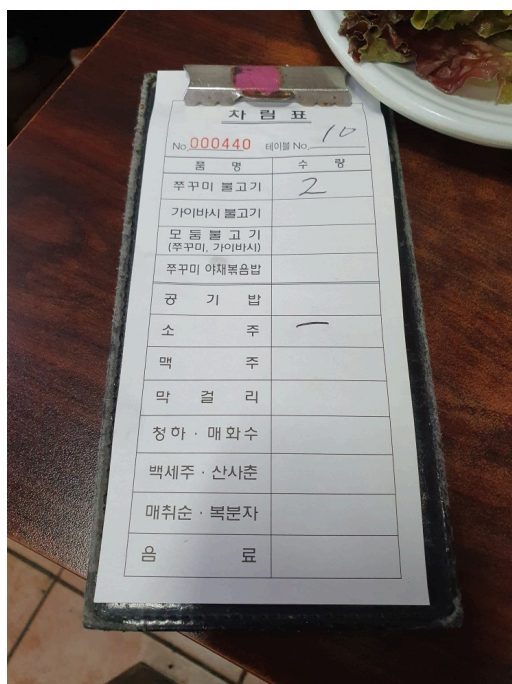 차림표
No. 000440 테이블 No. 10
품 명 수 량
쭈꾸미 불고기 2
가이바시 불고기
모둠불고기
(쭈꾸미, 가이바시)
쭈꾸미 야채볶음밥
공 기 밥
소 주 一
맥 주
막 걸 리
청하 · 매화수
백세주 · 산사춘
매취순 · 복분자
음 료